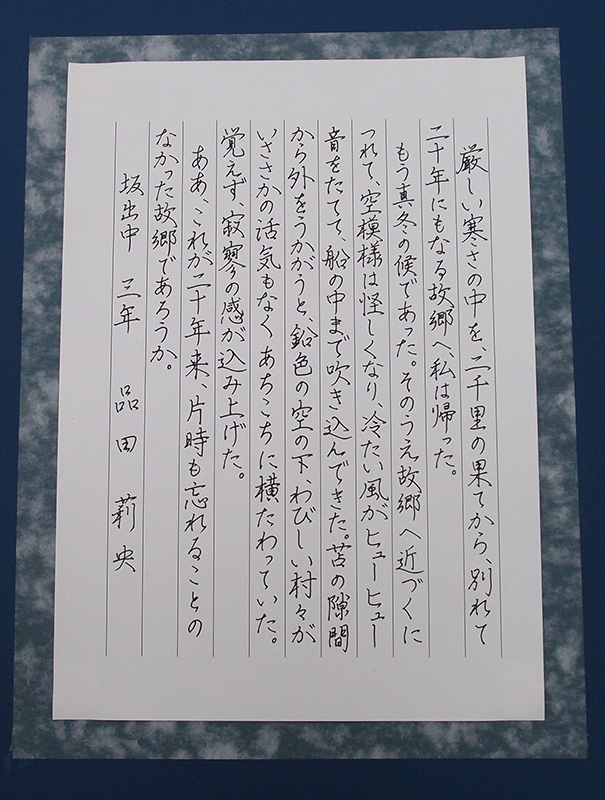 厳しい寒さの中を、二千里の果てから、別れて
二十年にもなる故郷へ、私は帰った。
もう真冬の候であった。そのうえ故郷へ近づくに
つれて、空模様は怪しくなり、冷たい風がヒューヒュー
音をたてて、船の中まで吹き込んできた。苫の隙間
から外をうかがうと、鉛色の空の下、わびしい村々が
いささかの活気もなく、あちこちに横たわっていた。
覚えず、寂寥の感が込み上げた。
ああ、これが二十年来、片時も忘れることの
なかった故郷であろうか。
坂出中 三年 品田 莉央